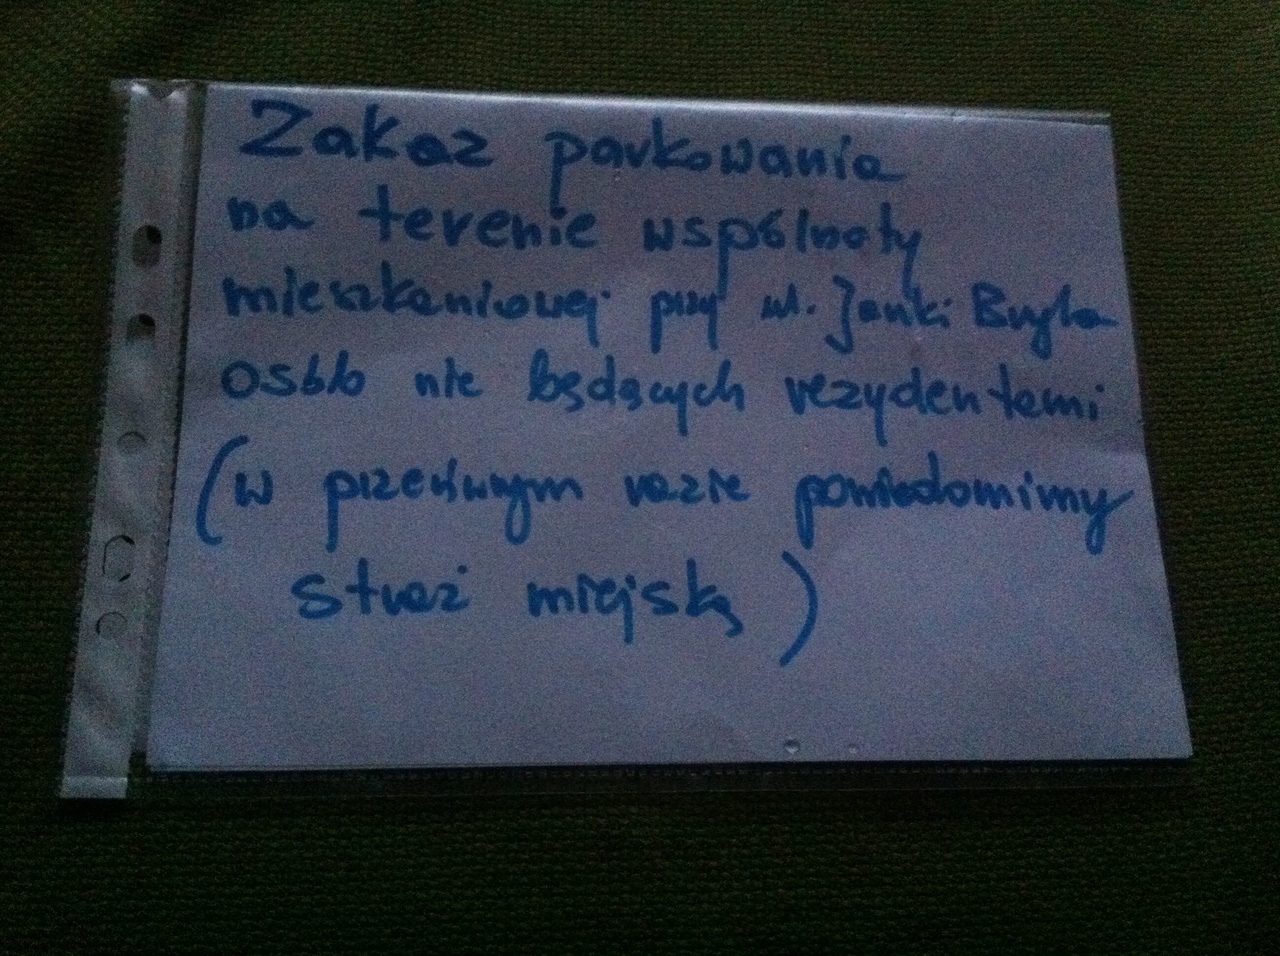 Zakaz parkowania
na terenie wspólnoty
mieszkaniowej przy ul. Janki Bryla
osób nie będących rezydentami
(w przeciwnym razie powiadomimy
straż miejską)